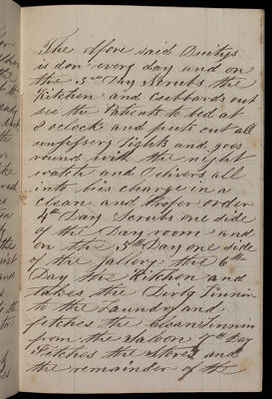 The Afore said Duitys
is don every day and on
the 3rd Day Scrubs the
Kitchen and Cubbards out
see the Patients to bed at
8 oclock and puts out all
unfissery Lights and goes
round with the night
watch and Delivers all
into his charge in a
clean and proper order
4th Day Scrubs one side
of the Day room and
on the 5th Day one side
of the Gallery the 6th
Day the Kitchen and
takes the Dirty Linnin
to the Laundry and
fitches the clean Linnin
from the 7th Day
Fitches the Stores and
the remainder of the